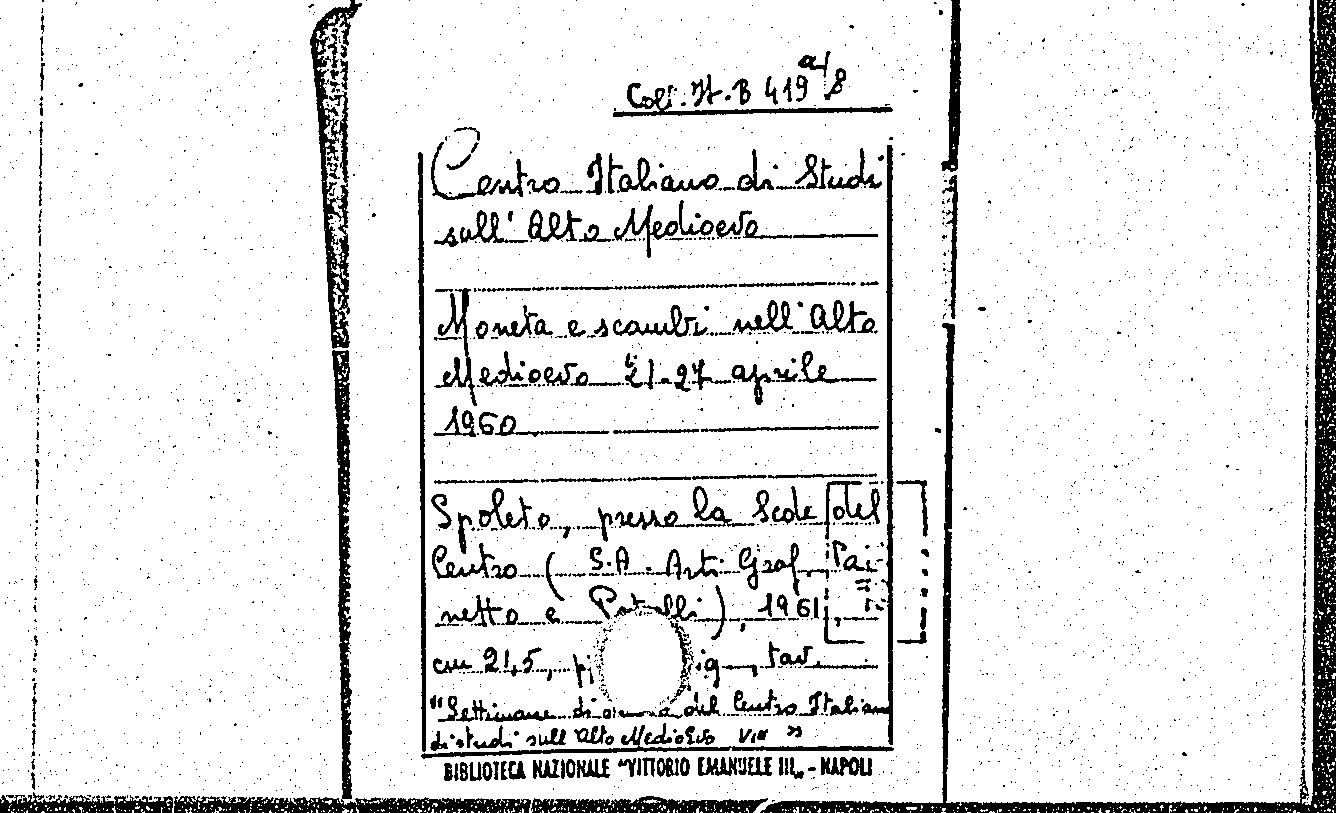 Coll. It. B 419 a/8
Centro Italiano di Studi
sull' Alto Medioevo
Moneta e scambi nell' Alto
Medioevo 21-27 aprile
1960
Spoleto, presso la Sede del
Centro ( S.A. Arti Graf.
netto e ), 1961,
cm 21,5, tav.
"Settimane di del Centro Italiano
di studi sull' Alto Medioevo VIII "
BIBLIOTECA NAZIONALE "VITTORIO EMANUELE III" - NAPOLI